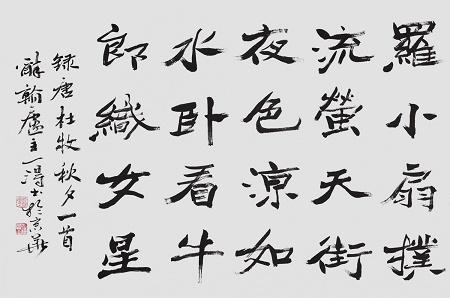 羅小扇撲
流螢天街
夜色涼如
水卧看牛
郎織女星
録唐杜牧秋夕一首
翰廬主一於京華